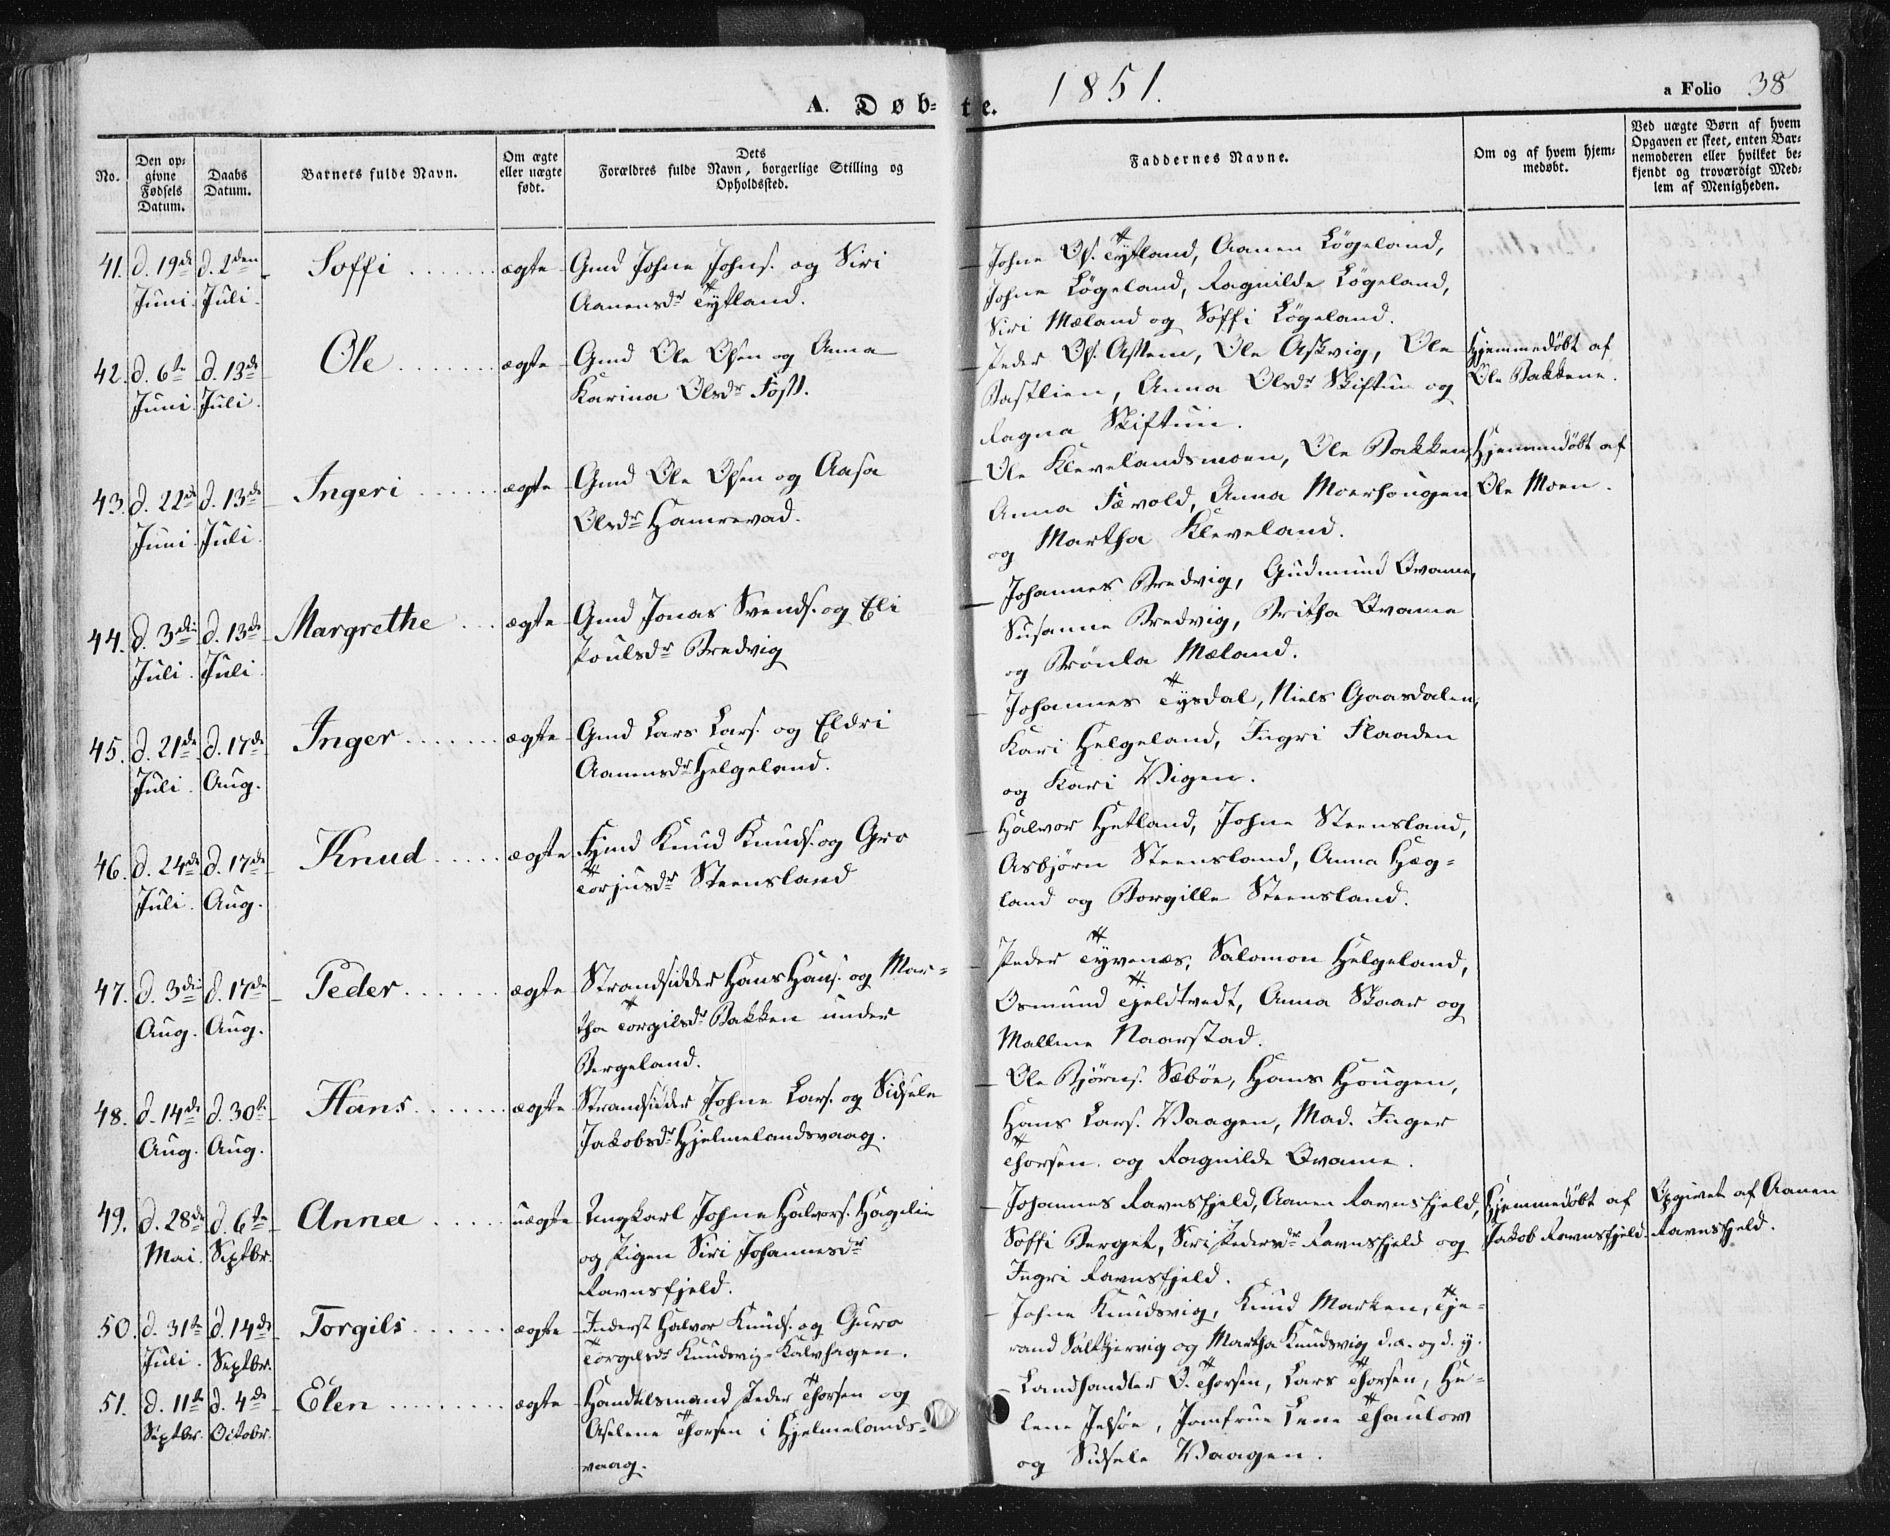 A. Døbte. 1851. a Folio 38
No. Den opgivne Fødsels Datum. Daabs Datum. Barnets fulde Navn. Om ægte eller uægte født. Dets Forældres fulde Navn, borgerlige Stilling og Opholdssted. Faddernes Navne. Om og af hvem hjemmedøbt. Ved uægte Børn af hvem Opgaven er skeet, enten Barnemoderen eller hvilket bekjendt og troværdigt Medlem af Menigheden.
41. d. 19de Juni. d. 2den Juli. Soffi ægte
Gmd Johne Johns. og Siri
Aanensdr Tytland.
Johne Ols. Tytland, Aanen Løgeland,
Johne Løgeland, Ragnilde Løgeland,
Siri Mæland og Soffi Løgeland.
42. d. 6te Juni. d. 13de Juli. Ole ægte
Gmd Ole Olsen og Anna
Karina Olsdr
Peder Ols. Ole Askvig, Ole
Anna Olsdr Skiftun og
Ragna Skiftun.
Hjemmedøbt af
Ole Bakkene.
43. d. 22de Juni. d. 13de Juli. Ingeri ægte
Gmd Ole Olsen og Aasa
Olsdr Hamrevad.
Ole Klevelandsmoen, Ole Bakken,
Anna Fævold, Anna Moerhougen
og Martha Kleveland.
Hjemmedøbt af
Ole Moen.
44. d. 3die Juli. d. 13de Juli. Margrethe ægte
Gmd Jonas Svends. og Eli
Poulsdr Bredvig
Johannes Bredvig, Gudmund Qvame,
Susanne Bredvig, Britha Qvame
og Brønla Mæland.
45. d. 21de Juli. d. 17de Aug. Inger ægte
Gmd Lars Lars. og Eldri
Aanensdr Helgeland.
Johannes Tysdal, Niels Gaardalen,
Kari Helgeland, Ingri Flaaden
og Kari Vigen.
46. d. 24de Juli. d. 17de Aug. Knud ægte
Hmd Knud Knuds. og Gro
Torjusdr Steensland
Halvor Hetland, Johne Steensland,
Asbjørn Steensland, Anna Hæg-
land og Borgille Steensland.
47. d. 3die Aug. d. 17de Aug. Peder ægte
Strandsidder Hans Hans. og Mar-
tha Torgilsdr Bakken under
Bergeland.
Peder Tyvenæs, Salomon Helgeland,
Osmund Tjeldtvedt, Anna Skaar og
Mallene Naarstad.
48. d. 14de Aug. d. 30te Aug. Hans ægte
Strandsidder Johne Lars. og Sidsele
Jakobsdr Hjelmelandsvaag.
Ole Bjørns. Sæbøe, Hans Hougen,
Hans Lars. Vaagen, Mad. Inger
Thorsen og Ragnilde Qvame.
49. d. 28de Mai. d. 6te Septbr. Anna uægte
Ungkarl Johne Halvors. Hagelie
og Pigen Siri Johannesdr
Ravnsfjeld.
Johannes Ravnsfjeld, Aanen Ravnsfjeld,
Soffi Berget, Siri Pedersdr Ravnsfjeld og
Ingri Ravnsfjeld.
Hjemmedøbt af
Jakob Ravnsfjeld.
Opgivet af Aanen
Ravnsfjeld.
50. d. 31te Juli. d. 14de Septbr. Torgils ægte
Inderst Halvor Knuds. og Guro
Torgilsdr Knudsvig-Kalvhagen.
Johne Knudsvig, Knud Marken, Tje-
rand Saltkjervig og Martha Knudsvig d. æ. og d. y.
51. d. 11te Septbr. d. 4de Octobr. Elen ægte
Handelsmand Peder Thorsen og
Aselene Thorsen i Hjelmelands-
vaag.
Landhandler O. Thorsen, Lars Thorsen, He-
lene Jelsøe, Jomfrue Lene Thaulow
og Sidsele Vaagen.